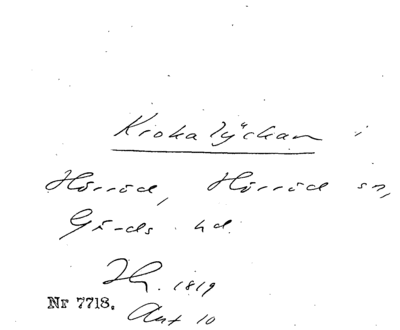 Krokalyckan i
Hörröd, Hörröd sn,
Gärds hd.
Lh. 1819
Nr 7718.
Akt 10